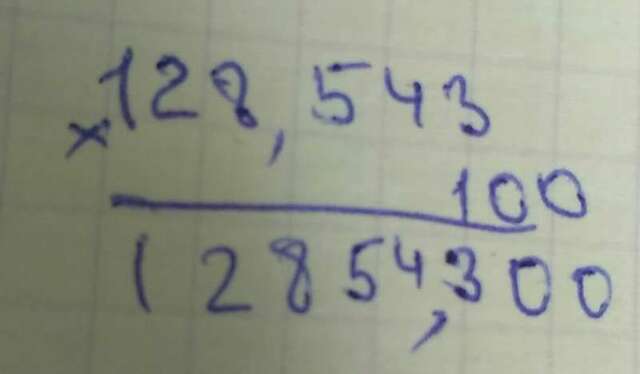 128,543
×
100
12854,300